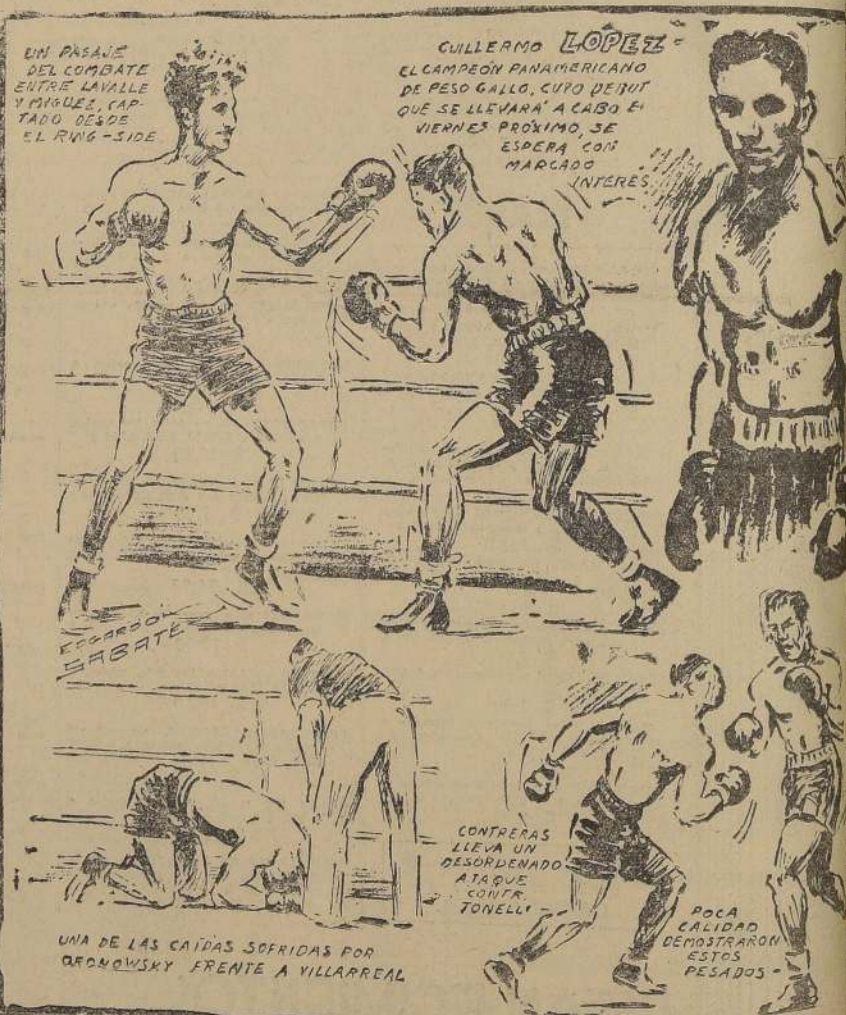 UN PASAJE
DEL COMBATE
ENTRE LAVALLE
Y MIGUEZ, CAP-
TADO DESDE
EL RING-SIDE
GUILLERMO LOPEZ -
EL CAMPEÓN PANAMERICANO
DE PESO GALLO, CUYO DEBUT
QUE SE LLEVARÁ A CABO EL
VIERNES PRÓXIMO, SE
ESPERA CON
MARCADO
INTERES
EDGARDO
SABATÉ
CONTRERAS
LLEVA UN
DESORDENADO
ATAQUE
CONTR.
TONELLI -
POCA
CALIDAD
DEMOSTRARON
ESTOS
PESADOS -
UNA DE LAS CAÍDAS SOFRIDAS POR
FRENTE A VILLARREAL